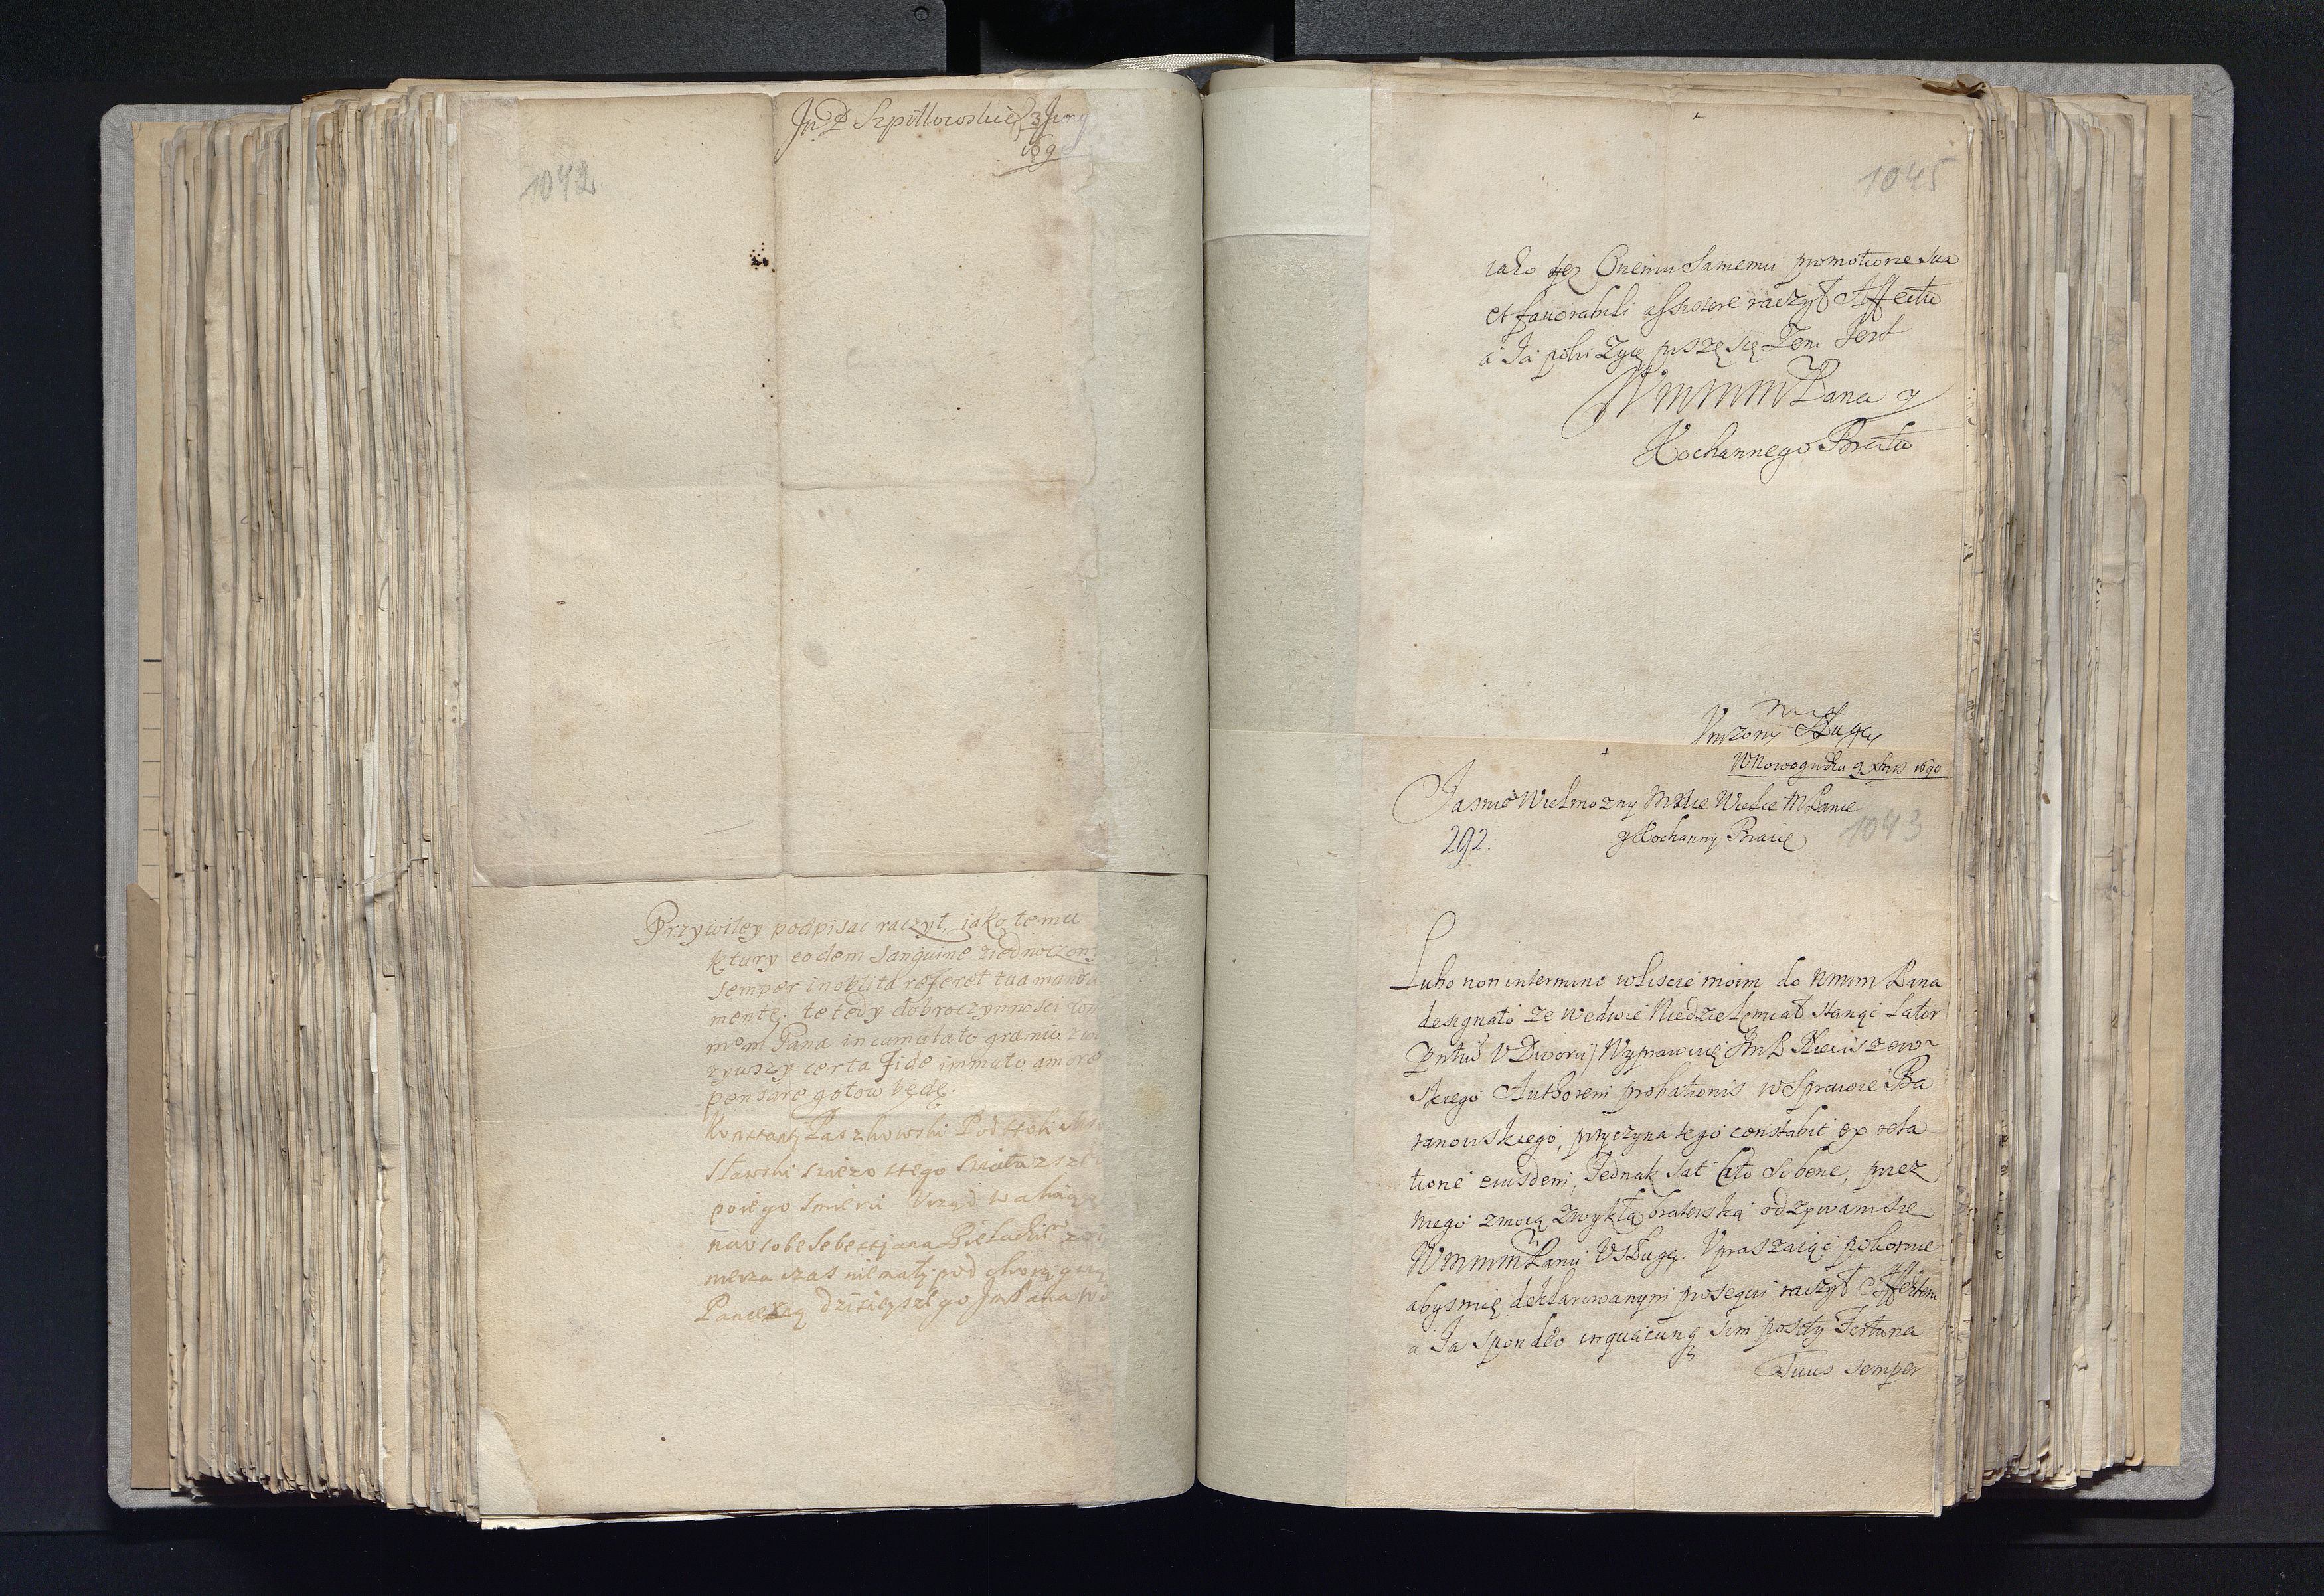 JP Szpiłłowskie 3 Juny
169
1042
Przywiley podpisac raczył, iako temu
ktury eodem Sanguine ziednoczony
semper inoblita referet tua munera
mente. te tedy dobroczynnosci
mom Pana incumulato gremio
zywszy certa fide immuto amore
pensare gotow będę.
Konstanty Paszkowski Podstoli
sławski swiezo stego swiata zszedł
poiego smierci Urząd wakuie
na osobe Sebestjana
mersza czas niemały pod choragwią
Pancerną dzisieyszego JmPana
1045
iako tez Onemu Samemu promotione sua
et fauorabili assistere raczył Affectu
a Ja poki Zyię piszę się Zem Jest
WmmmPana y
Kochannego Brata
Unizony Sługa
WNowogrudku 9 Xbris 1690
Jasnie Wielmozny Mnie Wielce MPanie
292. y Kochanny Bracie
1043
Lubo non in termino wliscie moim do Wmm Pana
designato ze wedwie Niedzieli miał stanąć Lator
Pntiu V Dworu, Wyprawuię JmP Kieiszew
skiego Authorem probationis w Sprawie Ba
ranowskiego, przyczyna tego constabit ex rela
tione eiusdem, Jednak sat cito si bene, przez
niego zmoią zwykłą braterską odzywam sie
Wmmm Panu Usługą. Upraszaiąc pokornie
abysmię deklarowanym prosequi raczył Affektem
a Ja spondeo in quacunq sim positg Fortuna
Tuus semper